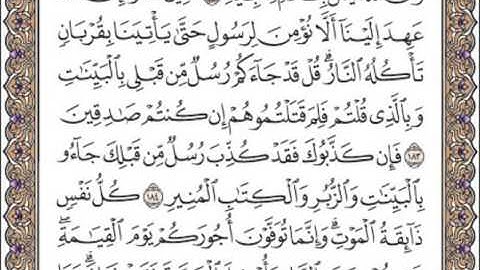 عَهِدَ إِلَيْنَآ أَلَّا نُؤْمِنَ لِرَسُولٍ حَتَّىٰ يَأْتِيَنَا بِقُرْبَانٍ
تَأْكُلُهُ ٱلنَّارُ ۗ قُلْ قَدْ جَآءَكُمْ رُسُلٌ مِّن قَبْلِى بِٱلْبَيِّنَٰتِ
وَبِٱلَّذِى قُلْتُمْ فَلِمَ قَتَلْتُمُوهُمْ إِن كُنتُمْ صَٰدِقِينَ
١٨٣ فَإِن كَذَّبُوكَ فَقَدْ كُذِّبَ رُسُلٌ مِّن قَبْلِكَ جَآءُو
بِٱلْبَيِّنَٰتِ وَٱلزُّبُرِ وَٱلْكِتَٰبِ ٱلْمُنِيرِ ١٨٤ كُلُّ نَفْسٍ
ذَآئِقَةُ ٱلْمَوْتِ ۗ وَإِنَّمَا تُوَفَّوْنَ أُجُورَكُمْ يَوْمَ ٱلْقِيَٰمَةِ ۖ